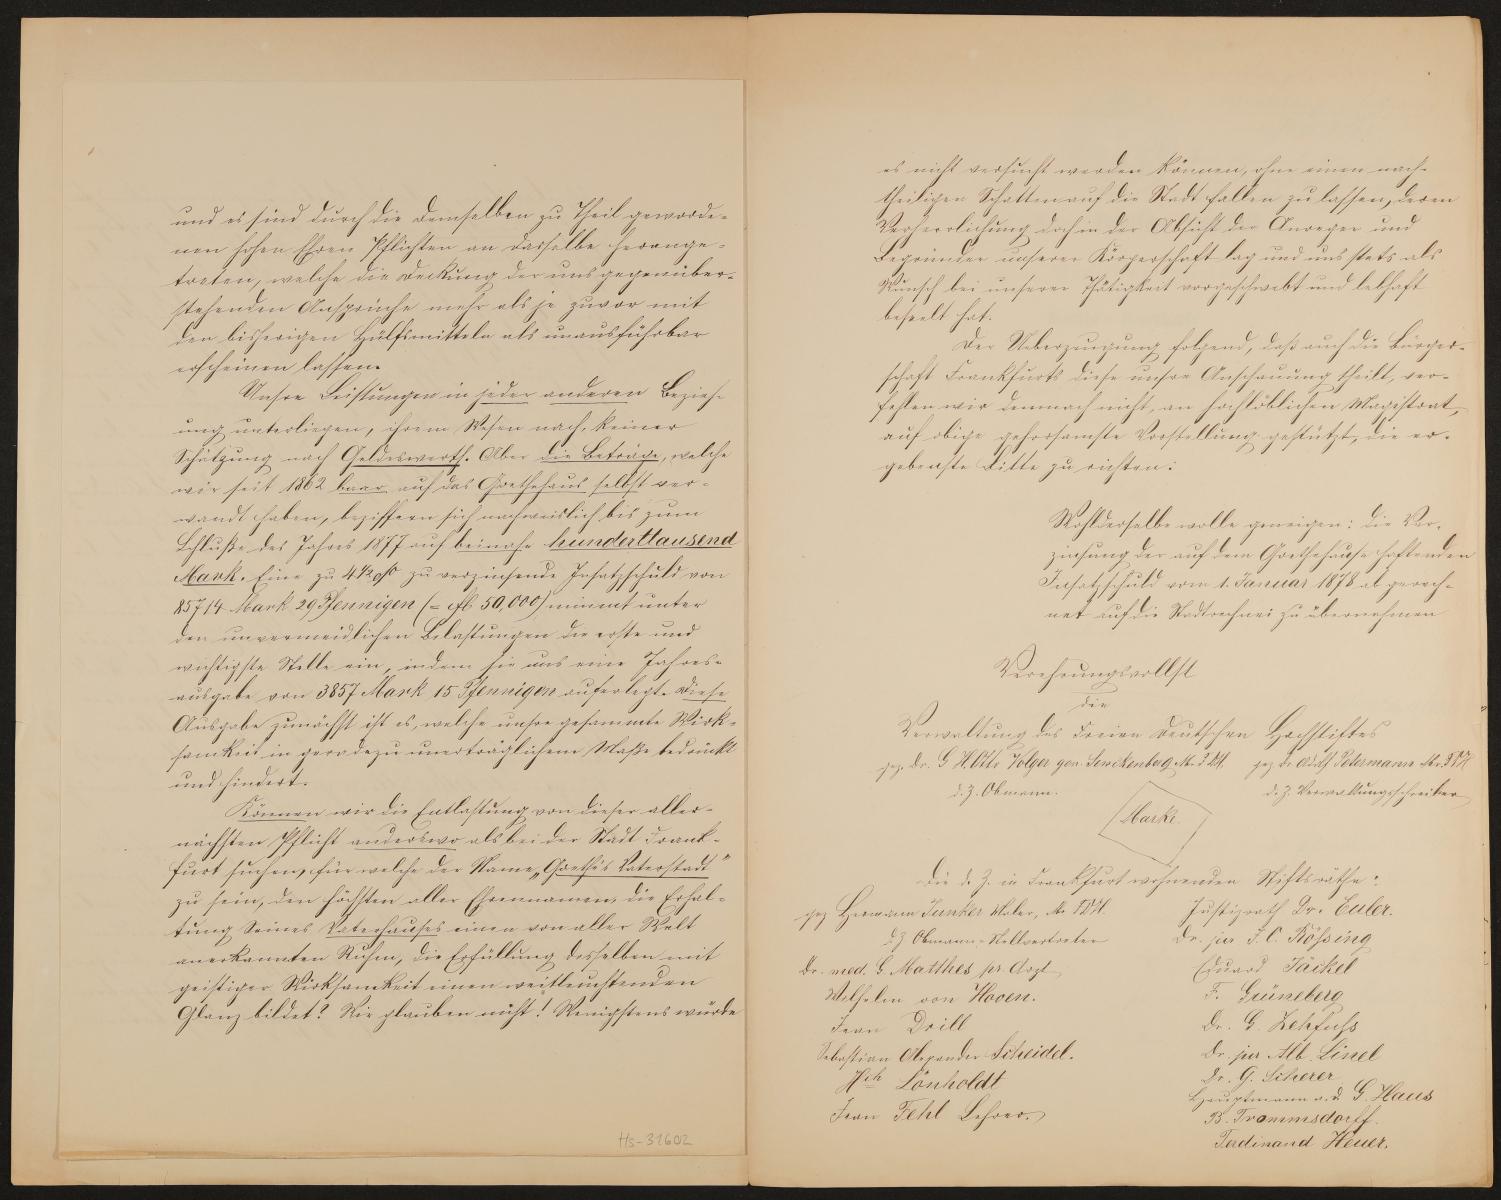 und es sind durch die demselben zu Theil geworde-
nen hohen Ehren Pflichten an dasselbe herange-
treten, welche die Deckung der uns gegenüber-
stehenden Ansprüche mehr als je zuvor mit
den bisherigen Hülfsmitteln als unausführbar
erscheinen lassen.
Unsre Leistungen in jeder anderen Bezieh-
ung unterliegen, ihrem Wesen nach, keiner
Schätzung nach Geldeswerth. Aber die Beträge, welche
wir seit 1862 baar auf das Goethehaus selbst ver-
wandt haben, beziffern sich nachweislich bis zum
Schluße des Jahres 1877 auf beinahe hunderttausend
Mark. Eine zu 4½ % zu verzinsende Insatzschuld von
85714 Mark 29 Pfennigen (= fl 50,000) nimmt unter
den unvermeidlichen Belastungen die erste und
wichtigste Stelle ein, indem sie uns eine Jahres-
ausgabe von 3857 Mark 15 Pfennigen auferlegt. Diese
Ausgabe zunächst ist es, welche unsre gesammte Wirk-
samkeit in geradezu unerträglichem Maße bedrückt
und hindert.
Können wir die Entlastung von dieser aller-
nächsten Pflicht anderswo als bei der Stadt Frank-
furt suchen, für welche der Name „Goethe's Vaterstadt"
zu sein, den höchsten aller Ehrennamen, die Erhal-
tung Seines Vaterhauses einen von aller Welt
anerkannten Ruhm, die Erfüllung desselben mit
geistiger Wirksamkeit einen weitleuchtenden
Glanz bildet? Wir glauben nicht! Wenigstens würde
Hs-31602
es nicht versucht werden können, ohne einen nach-
theiligen Schatten auf die Stadt fallen zu lassen, deren
Verherrlichung doch in der Absicht der Anreger und
Begründer unserer Körperschaft lag und uns stets als
Wunsch bei unserer Thätigkeit vorgeschwebt und lebhaft
beseelt hat.
Der Ueberzeugung folgend, daß auch die Bürger-
schaft Frankfurts diese unsre Anschauung theilt, ver-
fehlen wir demnach nicht, an hochlöblichen Magistrat,
auf obige gehorsamste Vorstellung gestützt, die er-
gebenste Bitte zu richten:
Wohlderselbe wolle geneigen: die Ver-
zinsung der auf dem Goethehause haftenden
Insatzschuld vom 1. Januar 1878 ab gerech-
net auf die Stadtrechnei zu übernehmen
Verehrungsvollst
die
Verwaltung des Freien Deutschen Hochstiftes
gez. Dr. G H Otto Volger gen. Senckenberg, M. FDH. gez Dr Adolf Petermann M. FDH
d. Z. Obmann. d. Z. Verwaltungsschreiber
Marke.
Die d. Z. in Frankfurt wohnenden Stiftsräthe:
gez Hermann Junker Maler, M. FDH. Justizrath Dr. Euler.
d Z Obmann-Stellvertreter Dr. jur F. C. Rößing
Dr. med. G. Matthes pr. Arzt Eduard Jäckel
Wilhelm von Hoven. F. Grüneberg
Jean Drill Dr. G. Zehfuß
Sebastian Alexander Scheidel. Dr jur Alb. Linel
Hch Lönholdt Dr. G. Scherer
Hauptmann a. D G. Haus
Jean Fehl Lehrer. B. Trommsdorff.
Ferdinand Heuer.